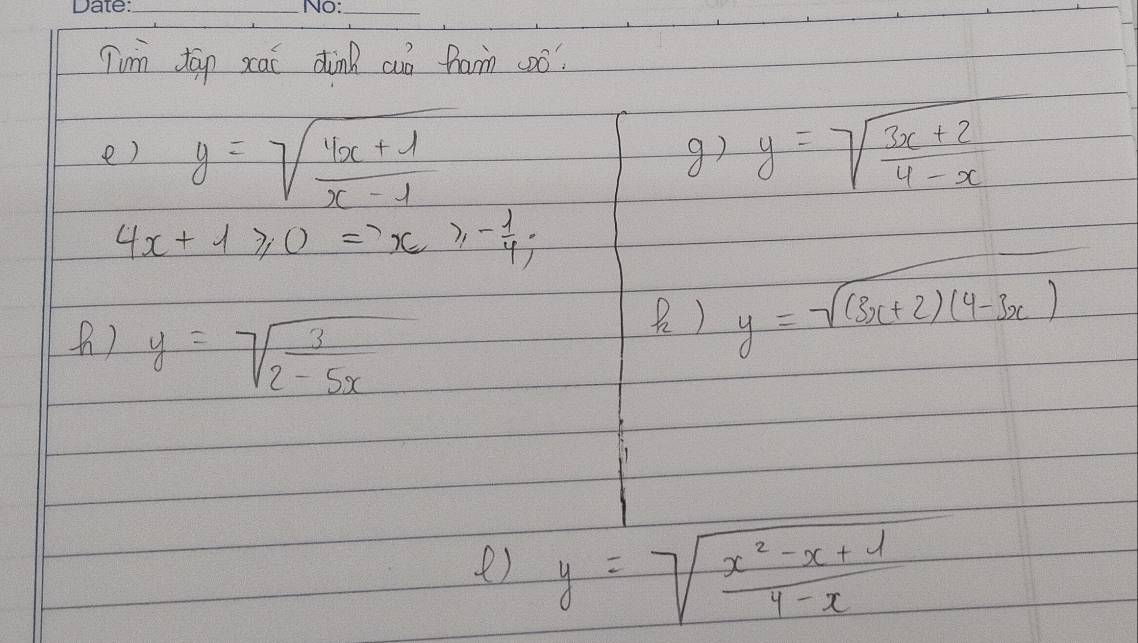 Date: No:
Tìm tập xác định của hàm số:
e) y = √((4x + 1)/(x - 1))
4x + 1 ≥ 0 => x ≥ -1/4;
h) y = √(3/(2 - 5x))
g) y = √((3x + 2)/(4 - x))
k) y = √((3x+2)(4-3x))
l) y = √((x² - x + 1)/(4 - x))